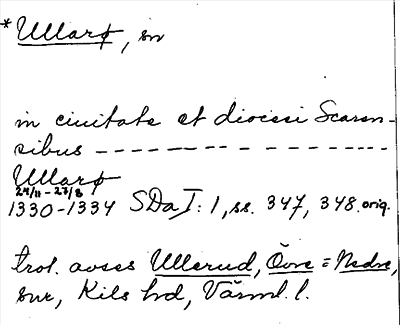 *Ullarø, sn
in ciuitate et diocesi Scaren-
sibus - - - - - - - - - - - - - - -
Ullarø
24/11 - 27/8
1330-1334 SDa I: 1, ss. 347, 348. orig.
trol. avses Ullerud, Övre = Nedre,
snr, Kils hd, Värml. l.